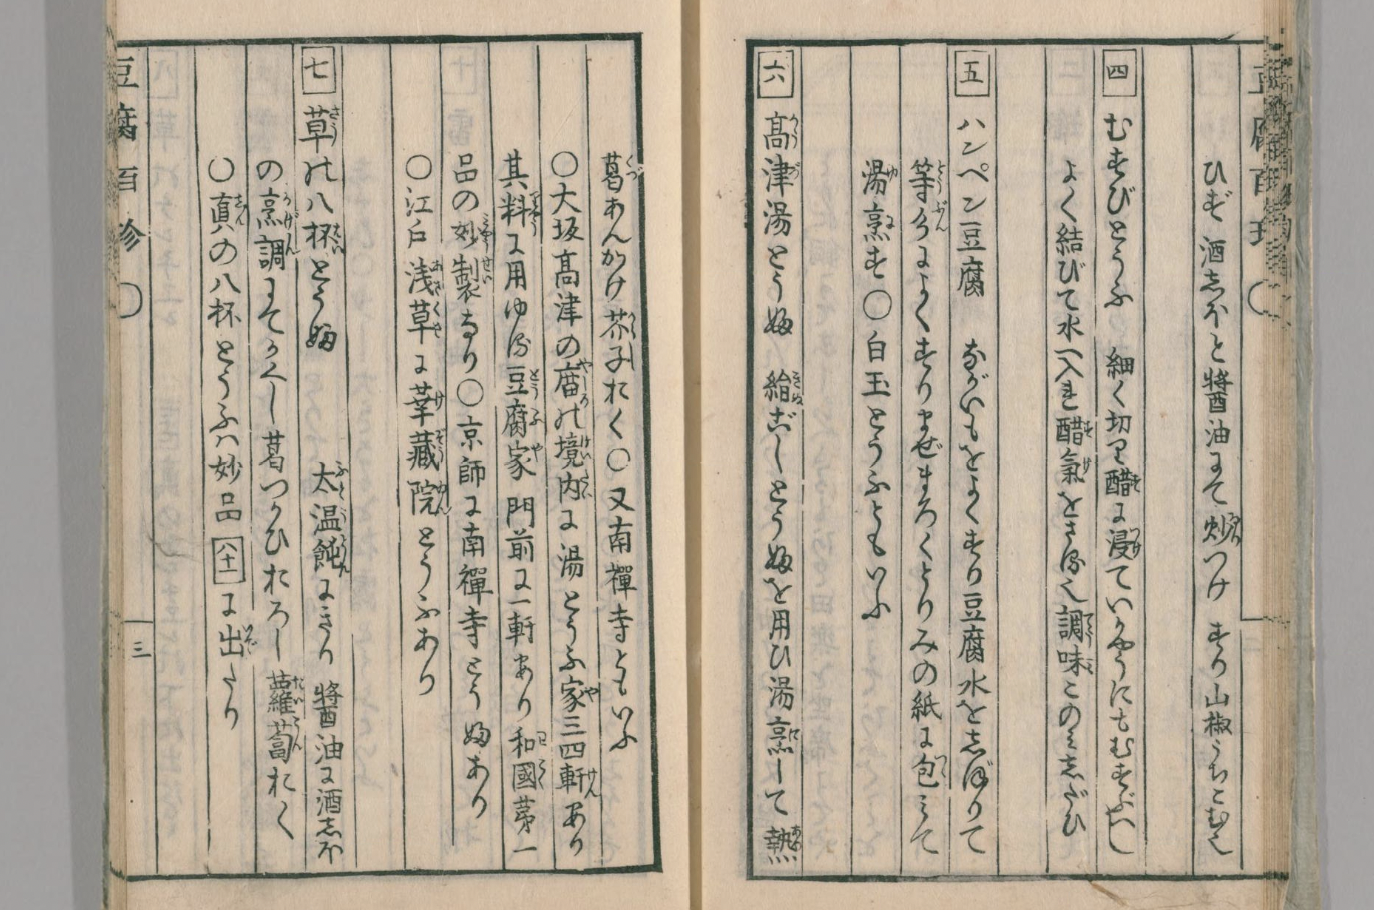 豆腐百珍
ひたず酒しほと醤油にて炒つけ すり山椒うちこむ也
四 むすびとうふ 細く切り醋に浸ていかやうにもむすぶべし
よく結びて水へ入れ醋氣をさる也調味このみしだひ
五 ハンペン豆腐 ながいもをよくすり豆腐水をしぼりて
等分によくすりまぜまろくとりみの紙に包みて
湯烹す〇白玉とうふともいふ
六 高津湯とうふ 絹ごしとうふを用ひ湯烹して熱
葛あんかけ芥子おく〇又南禪寺ともいふ
〇大坂高津の庿の境内に湯とうふ家三四軒あり
其料に用ゆる豆腐家門前に一軒あり和國苐一
品の妙製なり〇京師に南禪寺とうふあり
〇江戸浅草に華藏院とうふあり
七 草の八杯とうふ 太温飩にきり 醤油に酒しほ
の烹調にてかくし葛つかひおろし蘿蔔おく
〇真の八杯とうふハ妙品八十一に出たり
豆腐百珍〇 三